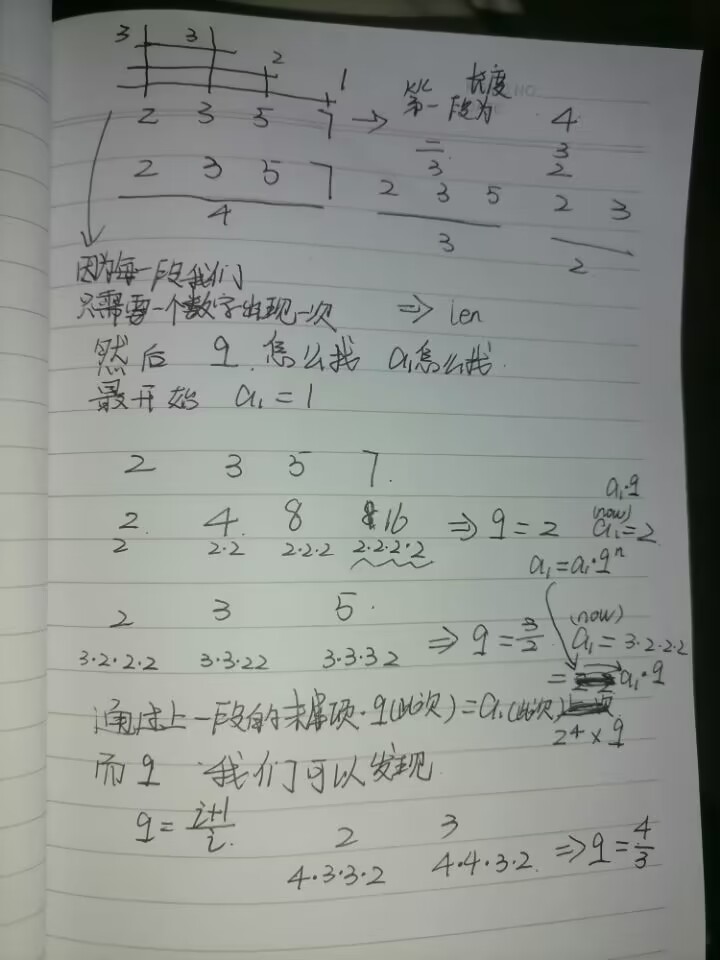 3 3
2
1
2 3 5 7 → 第一段 长度为 4
二 3
三 2
2 3 5 7
4
2 3 5
3
2 3
2
因为每一段我们
只需要一个数字出现一次 ⇒ len
然后 q 怎么找 a₁怎么找.
最开始 a₁ = 1
2 3 5 7.
a₁·q
2. 4. 8 16 ⇒ q = 2 (now) a₁ = 2
2 2·2 2·2·2 2·2·2·2
a₁ = a₁·qⁿ
2 3 5.
3·2·2·2 3·3·2 2 3·3·3 2 ⇒ q = 3/2 (now) a₁ = 3·2·2·2
= a₁·q
通过上一段的末尾项·q(此次) = a₁(此次)
2⁴ × q
而 q 我们可以发现
q = i+1/i. 2 3
4·3·3·2 4·4·3·2. ⇒ q = 4/3